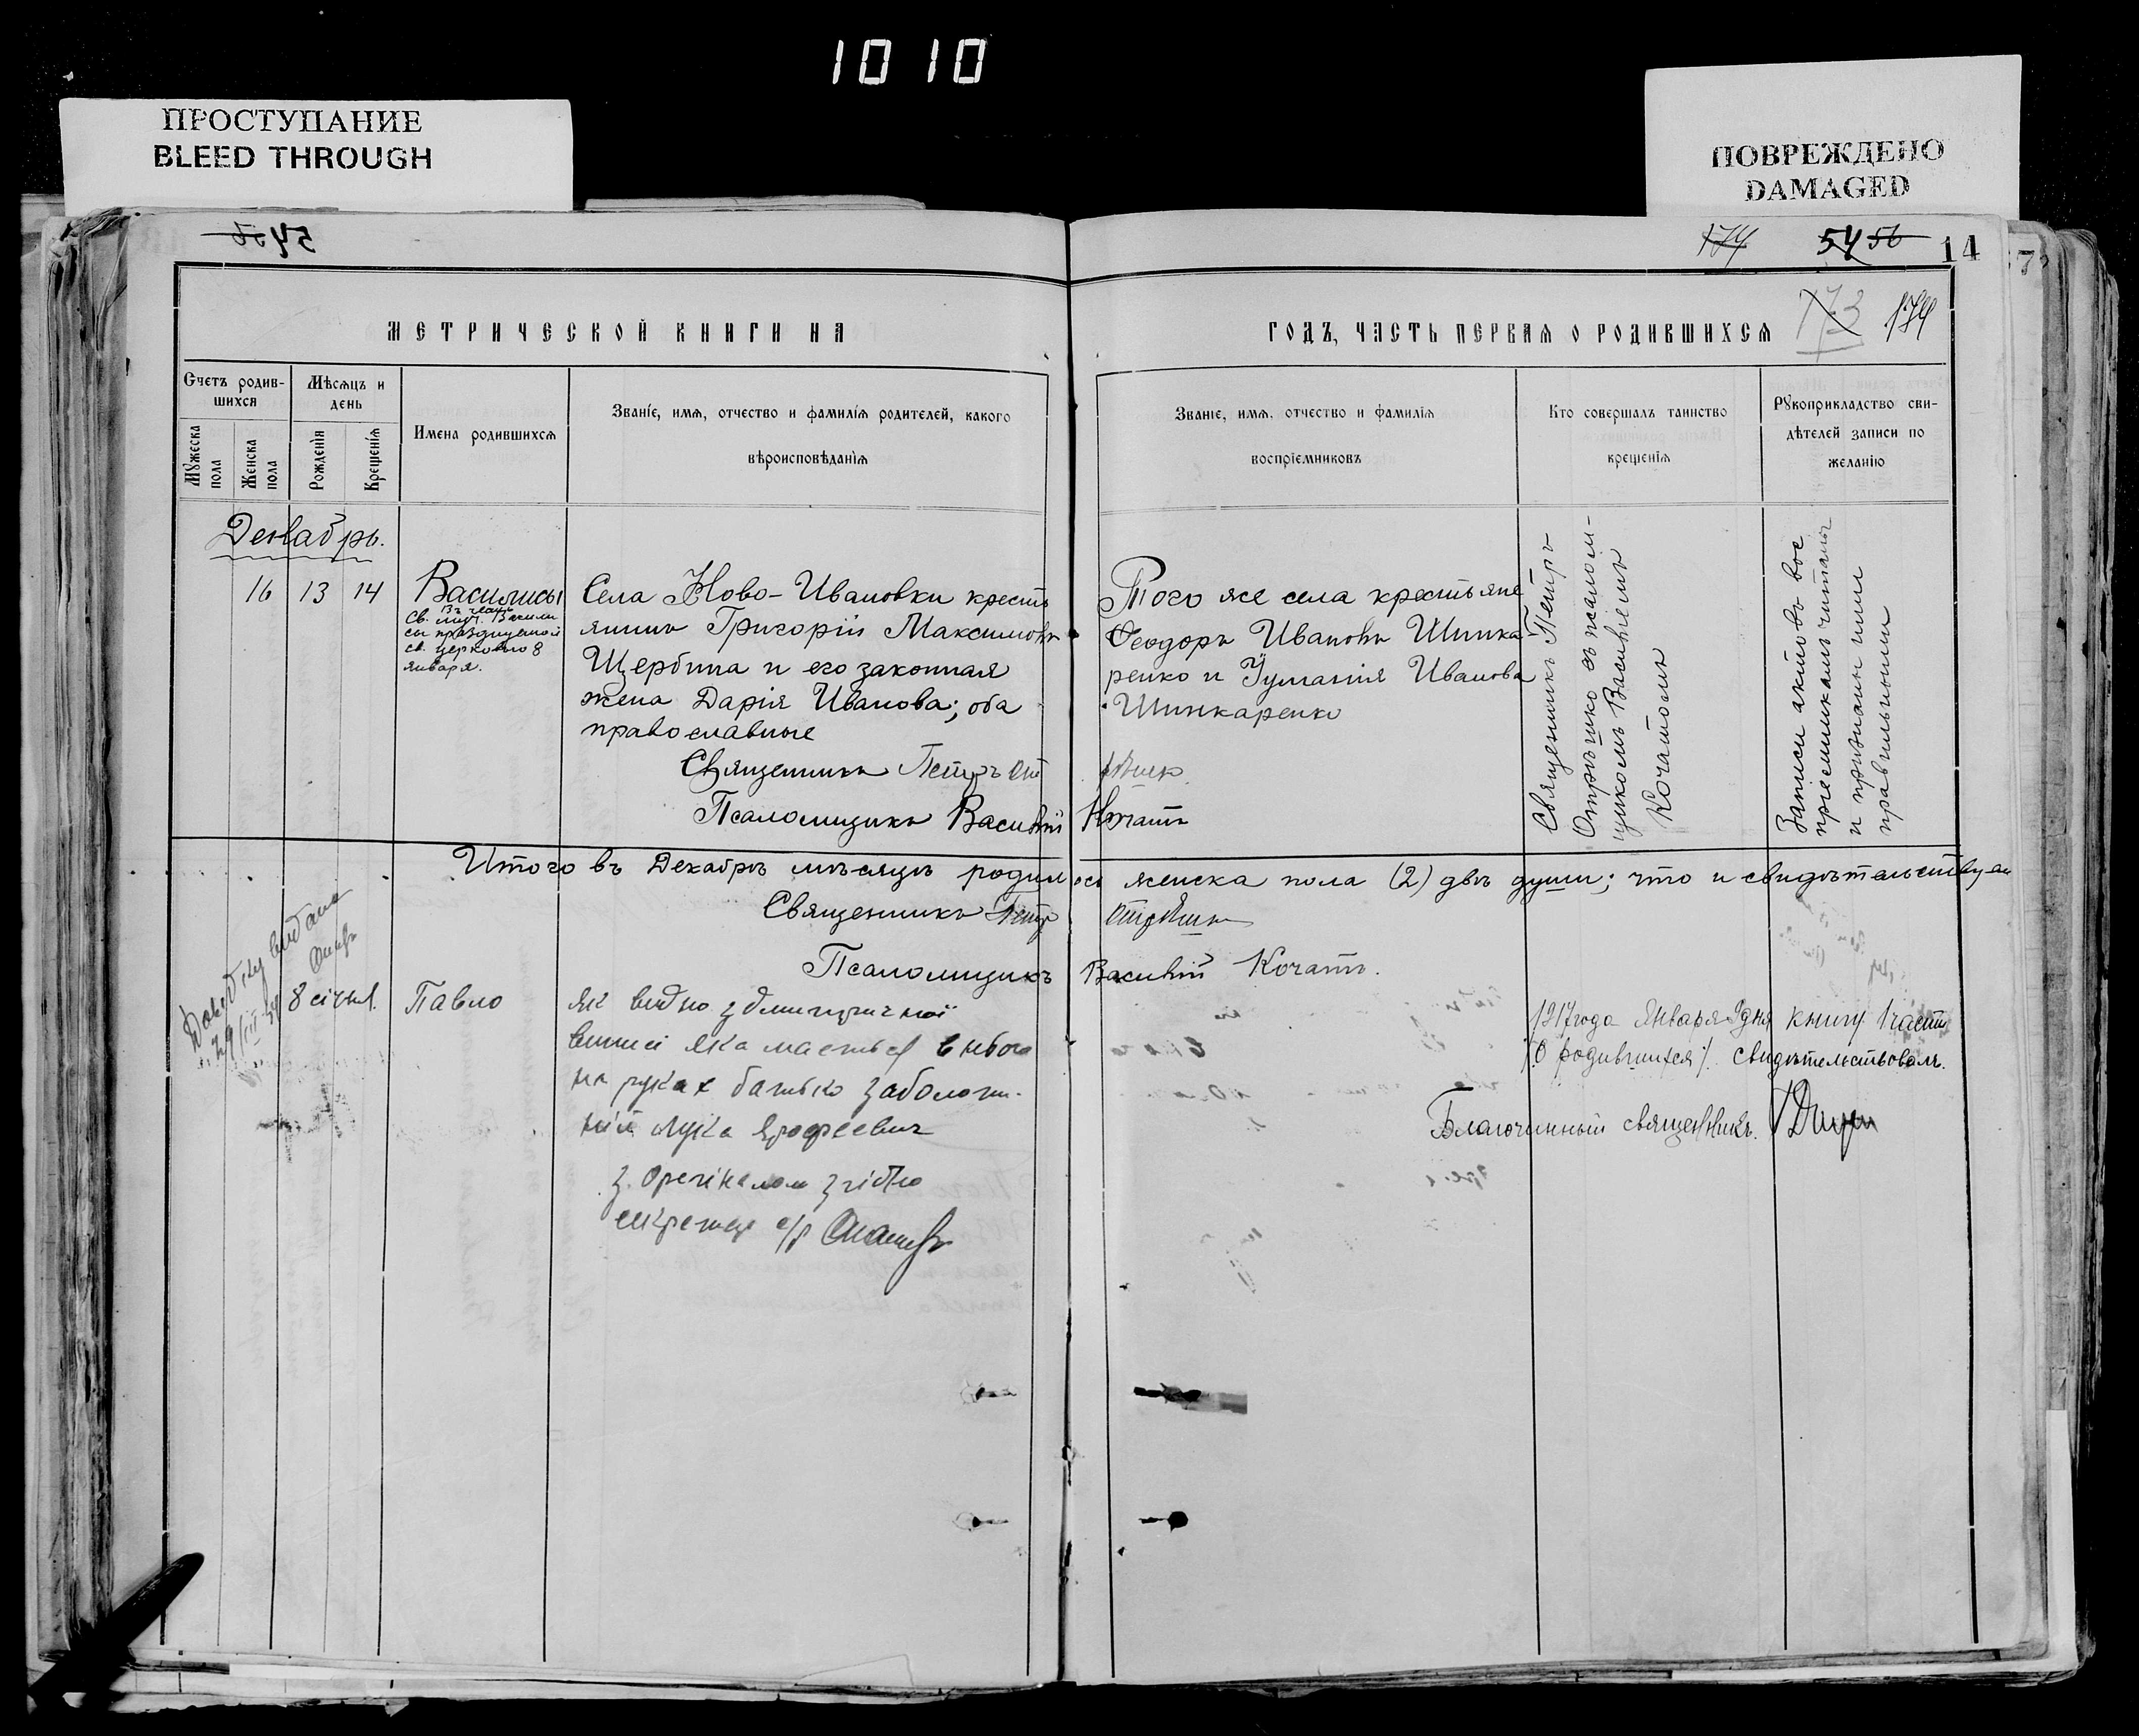 1010
ПРОСТУПАНИЕ
BLEED THROUGH
ПОВРЕЖДЕНО
DAMAGED
174 54 56 14
173 174
МЕТРИЧЕСКОЙ КНИГИ НА
ГОДЪ, ЧАСТЬ ПЕРВАЯ О РОДИВШИХСЯ
Счетъ родив-
шихся
Мужеска
пола
Женска
пола
Мѣсяцъ и
день
Рожденія
Крещенія
Имена родившихся
Званіе, имя, отчество и фамилія родителей, какого
вѣроисповѣданія
Званіе, имя, отчество и фамилія
воспріемниковъ
Кто совершалъ таинство
крещенія
Рукоприкладство сви-
дѣтелей записи по
желанію
Декабрь.
16 13 14
Василисы
въ честь
св. муч. Васили
сы празднуемой
св. церковью 8
января.
Села Ново-Ивановки кресть
янинъ Григорій Максимовъ
Щербина и его законная
жена Дарія Иванова; оба
православные
Священникъ Петръ
Псаломщикъ Василій Кочатъ
Того же села крестьяне
Ѳеодоръ Ивановъ Шинка
ренко и Иванова
Шинкаренко
Священникъ Петръ
съ псалом-
щикомъ Василіемъ
Записи актовъ вос
пріемникамъ читаны
и признаны ими
правильными
Итого въ Декабрѣ мѣсяцѣ родилось женска пола (2) двѣ души; что и свидѣтельствуемъ
Священникъ Петръ
Псаломщикъ Василій Кочатъ.
видана
8 січня.
Павло
як видно з метричної
виписі яка мається в нього
на руках батько Заболот-
ній Лука Ерофеевич
з Оригіналом згідно
секретар с/р
1917 года Января 9 дня книгу 1 части
/О родившихся/ свидѣтельствовалъ.
Благочинный священникъ.